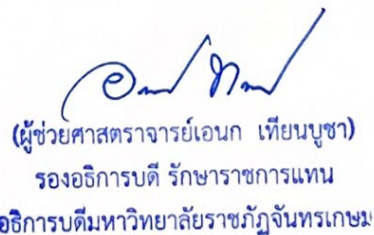 (ผู้ช่วยศาสตราจารย์เอนก เทียนบูชา)
รองอธิการบดี รักษาราชการแทน
อธิการบดีมหาวิทยาลัยราชภัฏจันทรเกษม